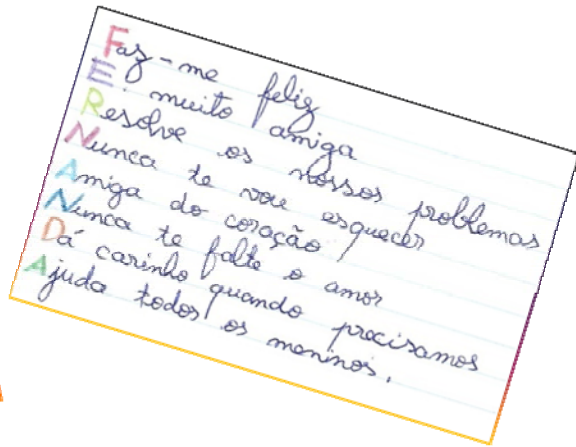 Faz-me feliz
É muito amiga
Resolve os nossos problemas
Nunca te vou esquecer
Amiga do coração
Nunca te falte o amor
Dá carinho quando precisamos
Ajuda todos os meninos.